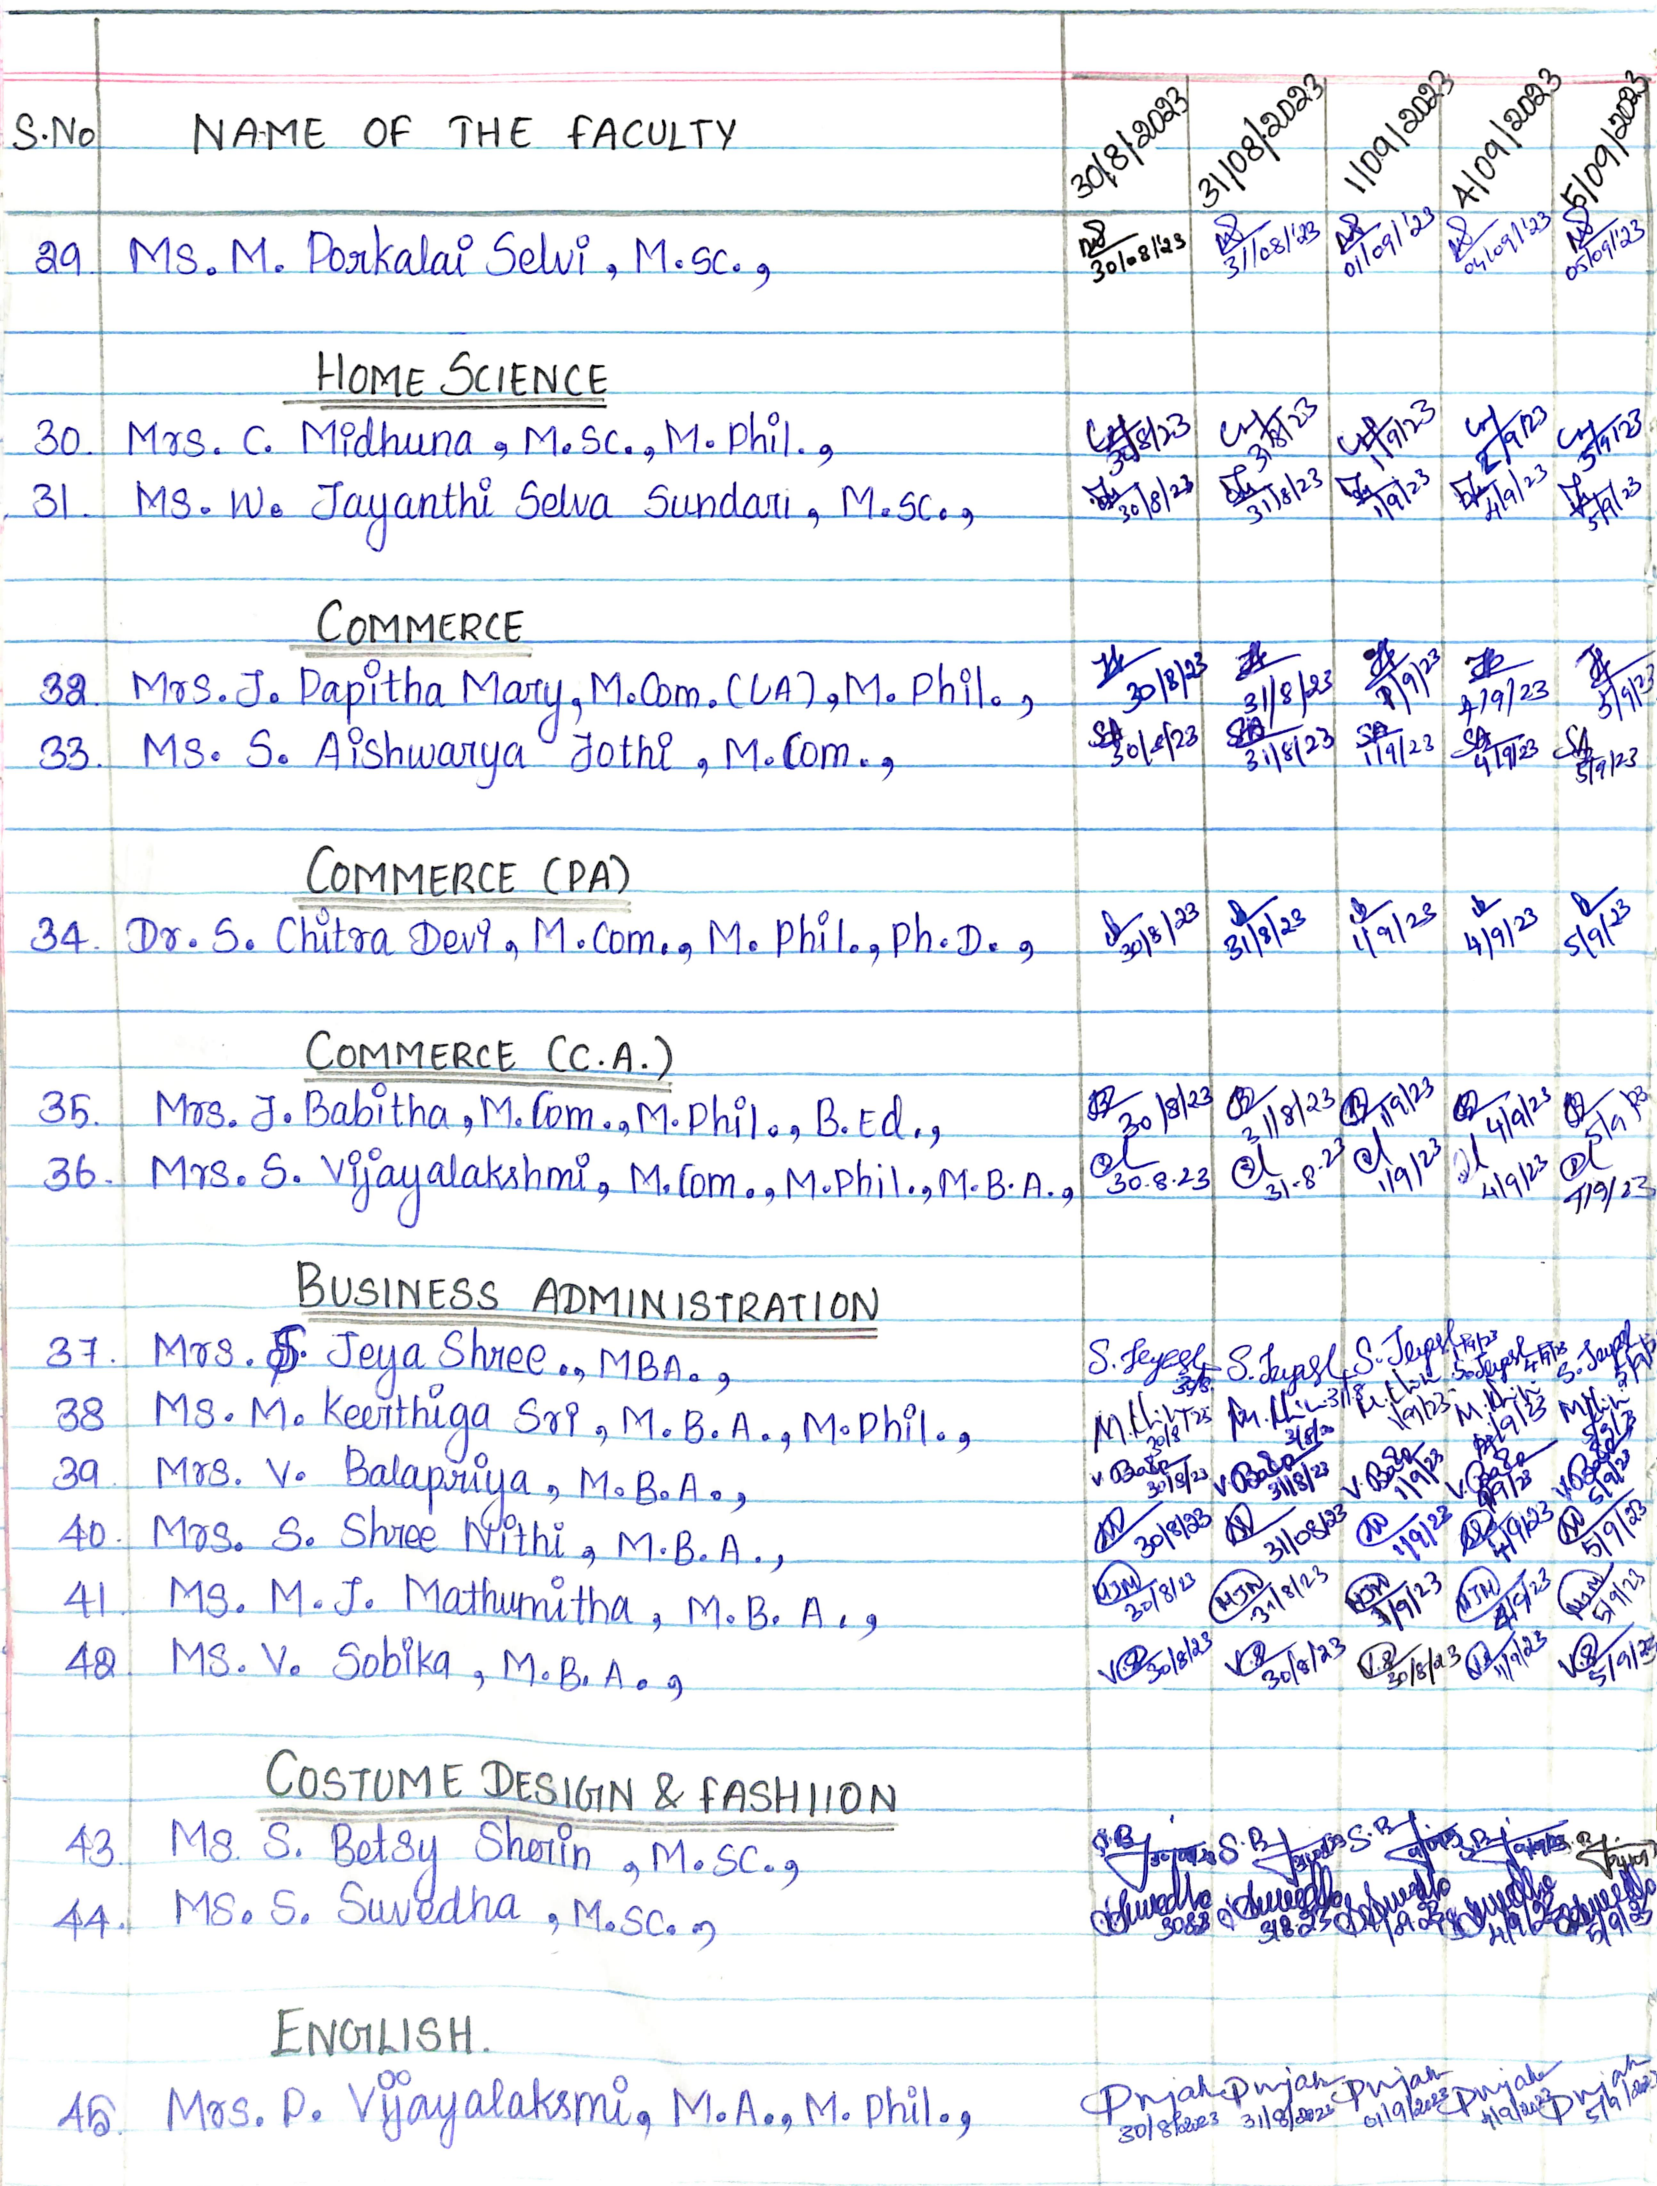 S.No NAME OF THE FACULTY 30/8/2023 31/08/2023 1/09/2023 4/09/2023 5/09/2023
29. Ms. M. Porkalai Selvi, M.sc., 30/08/'23 31/08/'23 01/09/'23 04/09/'23 05/09/'23
HOME SCIENCE
30. Mrs. C. Midhuna, M.sc., M.Phil., 30/8/23 31/8/23 1/9/23 /9/23 5/9/23
31. Ms. W. Jayanthi Selva Sundari, M.sc., 30/8/23 31/8/23 1/9/23 4/9/23 5/9/23
COMMERCE
32. Mrs. J. Papitha Mary, M.Com.(CA), M.Phil., 30/8/23 31/8/23 1/9/23 4/9/23 5/9/23
33. Ms. S. Aishwarya Jothi, M.Com., SA 30/8/23 SA 31/8/23 SA 1/9/23 SA 4/9/23 SA 5/9/23
COMMERCE (PA)
34. Dr. S. Chitra Devi, M.Com., M.Phil., Ph.D., 30/8/23 31/8/23 1/9/23 4/9/23 5/9/23
COMMERCE (C.A.)
35. Mrs. J. Babitha, M.Com., M.Phil., B.Ed., 30/8/23 31/8/23 1/9/23 4/9/23 5/9/23
36. Mrs. S. Vijayalakshmi, M.Com., M.Phil., M.B.A., 30.8.23 31-8-23 1/9/23 4/9/23 /9/23
BUSINESS ADMINISTRATION
37. Mrs. S. Jeya Shree., MBA.,
38 Ms. M. Keerthiga Sri, M.B.A., M.Phil., 1/9/23
39 Mrs. V. Balapriya, M.B.A., V. Bala 30/8/23 V. Bala 31/8/23 V. Bala 1/9/23 V. Bala 4/9/23 V. Bala 5/9/23
40. Mrs. S. Shree Nithi, M.B.A., 30/8/23 31/08/23 1/9/23 4/9/23 5/9/23
41 Ms. M. J. Mathumitha, M.B.A., MJM 30/8/23 MJM 31/8/23 MJM 1/9/23 MJM 4/9/23 MJM 5/9/23
42 Ms. V. Sobika, M.B.A., V.S 30/8/23 V.S 30/8/23 V.S 30/8/23 V.S 1/9/23 V.S 5/9/23
COSTUME DESIGN & FASHIION
43. Ms. S. Betsy Sherin, M.SC., S.B S.B S.B S.B
44. Ms. S. Suvedha, M.SC., Suvedha Suvedha Suvedha Suvedha 4/9/23 Suvedha 5/9/23
ENGLISH.
45 Mrs. P. Vijayalaksmi, M.A., M.Phil., 30/8/2023 31/8/2023 01/9/2023 4/9/2023 5/9/2023